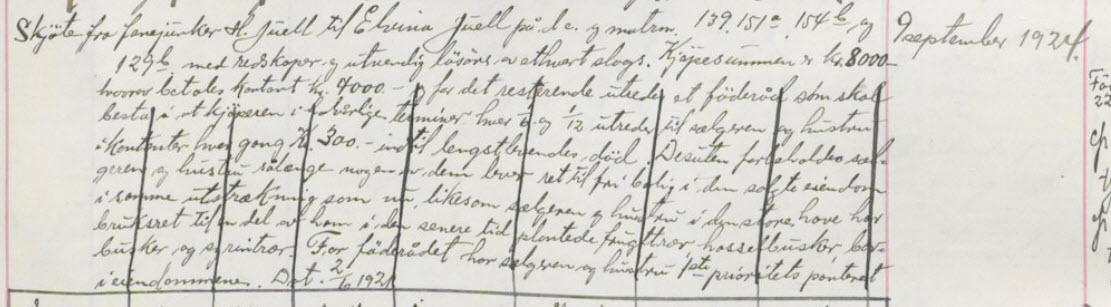 Skjöte fra fanejunker H. Juell til Elvina Juell på l.e. og matrn. 139, 151a, 154b, og
129b, med redskaper og utvendig lösöre av ethvert slags. Kjöpesummen er kr. 8000.-
hvorav betales kontant kr. 4000.- og for det resterende utredes et föderåd som skal
bestå i at kjöperen i halvårlige terminer hver og 1/12 utreder til sælgeren og hustru
i kontanter hver gang kr. 300.- indtil lengstlevendes død. Desuten forbeholdes sæl-
geren og hustru sålænge nogen av dem lever ret til fri bolig i den solgte eiendom
i samme utstrækning som nu, likesom sælgeren og hustru i den store have har
bruksret til en del av ham i den senere tid plantede frugttrær, hasselbusker, bær-
busker og syrintrær. For föderådet har sælgeren og hustru 1ste prioritets panteret
i eiendommene. Dat. 2/6 1921
9 september 1921.